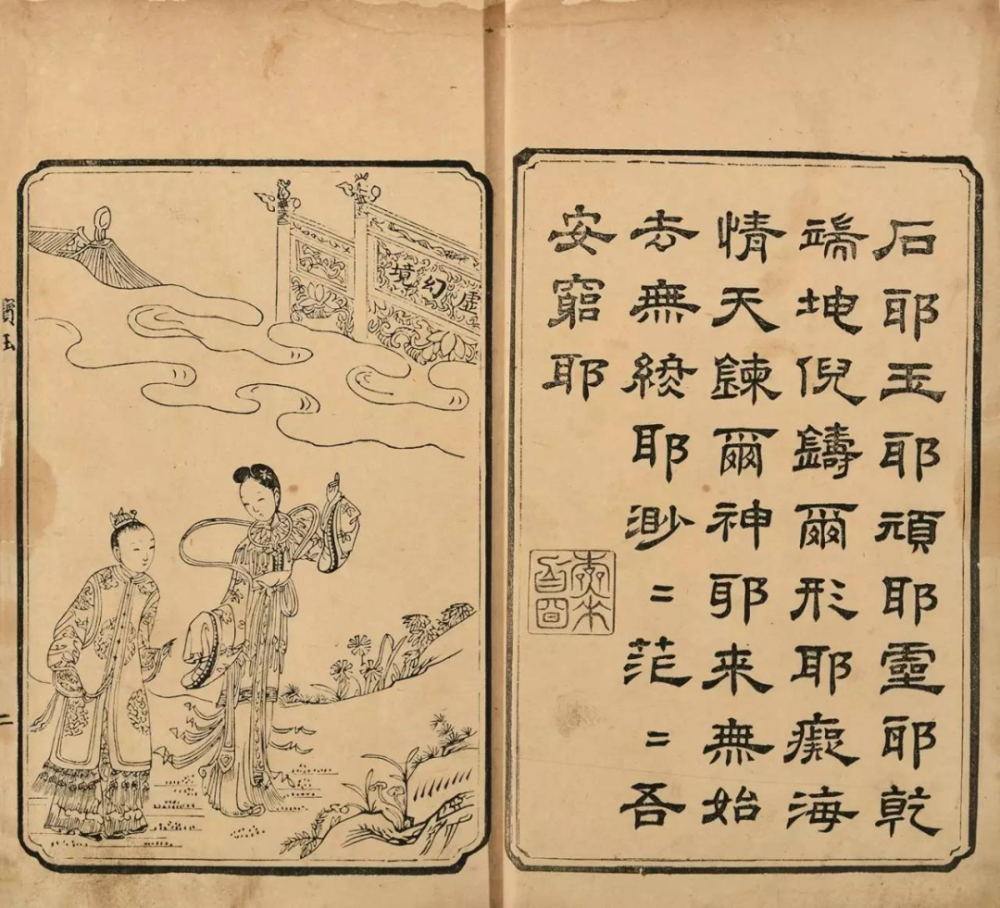 石耶玉耶頑耶靈耶乾
端坤倪鑄爾形耶癡海
情天鍊爾神耶来無始
去無終耶渺〻茫〻吾
安窮耶
虛幻境
寳玉
二